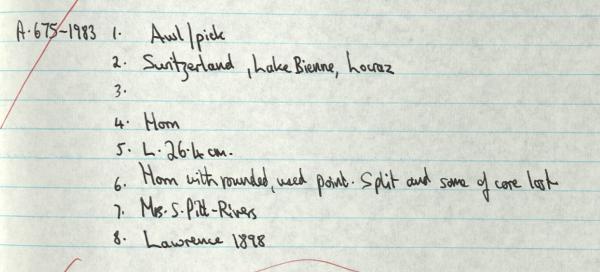 A·675-1983 1. Awl/pick
2. Switzerland, Lake Bienne, Locraz
3.
4. Horn
5. L. 26.4 cm.
6. Horn with rounded, used point. Split and some of core lost
7. Mrs. S. Pitt-Rivers
8. Lawrence 1898